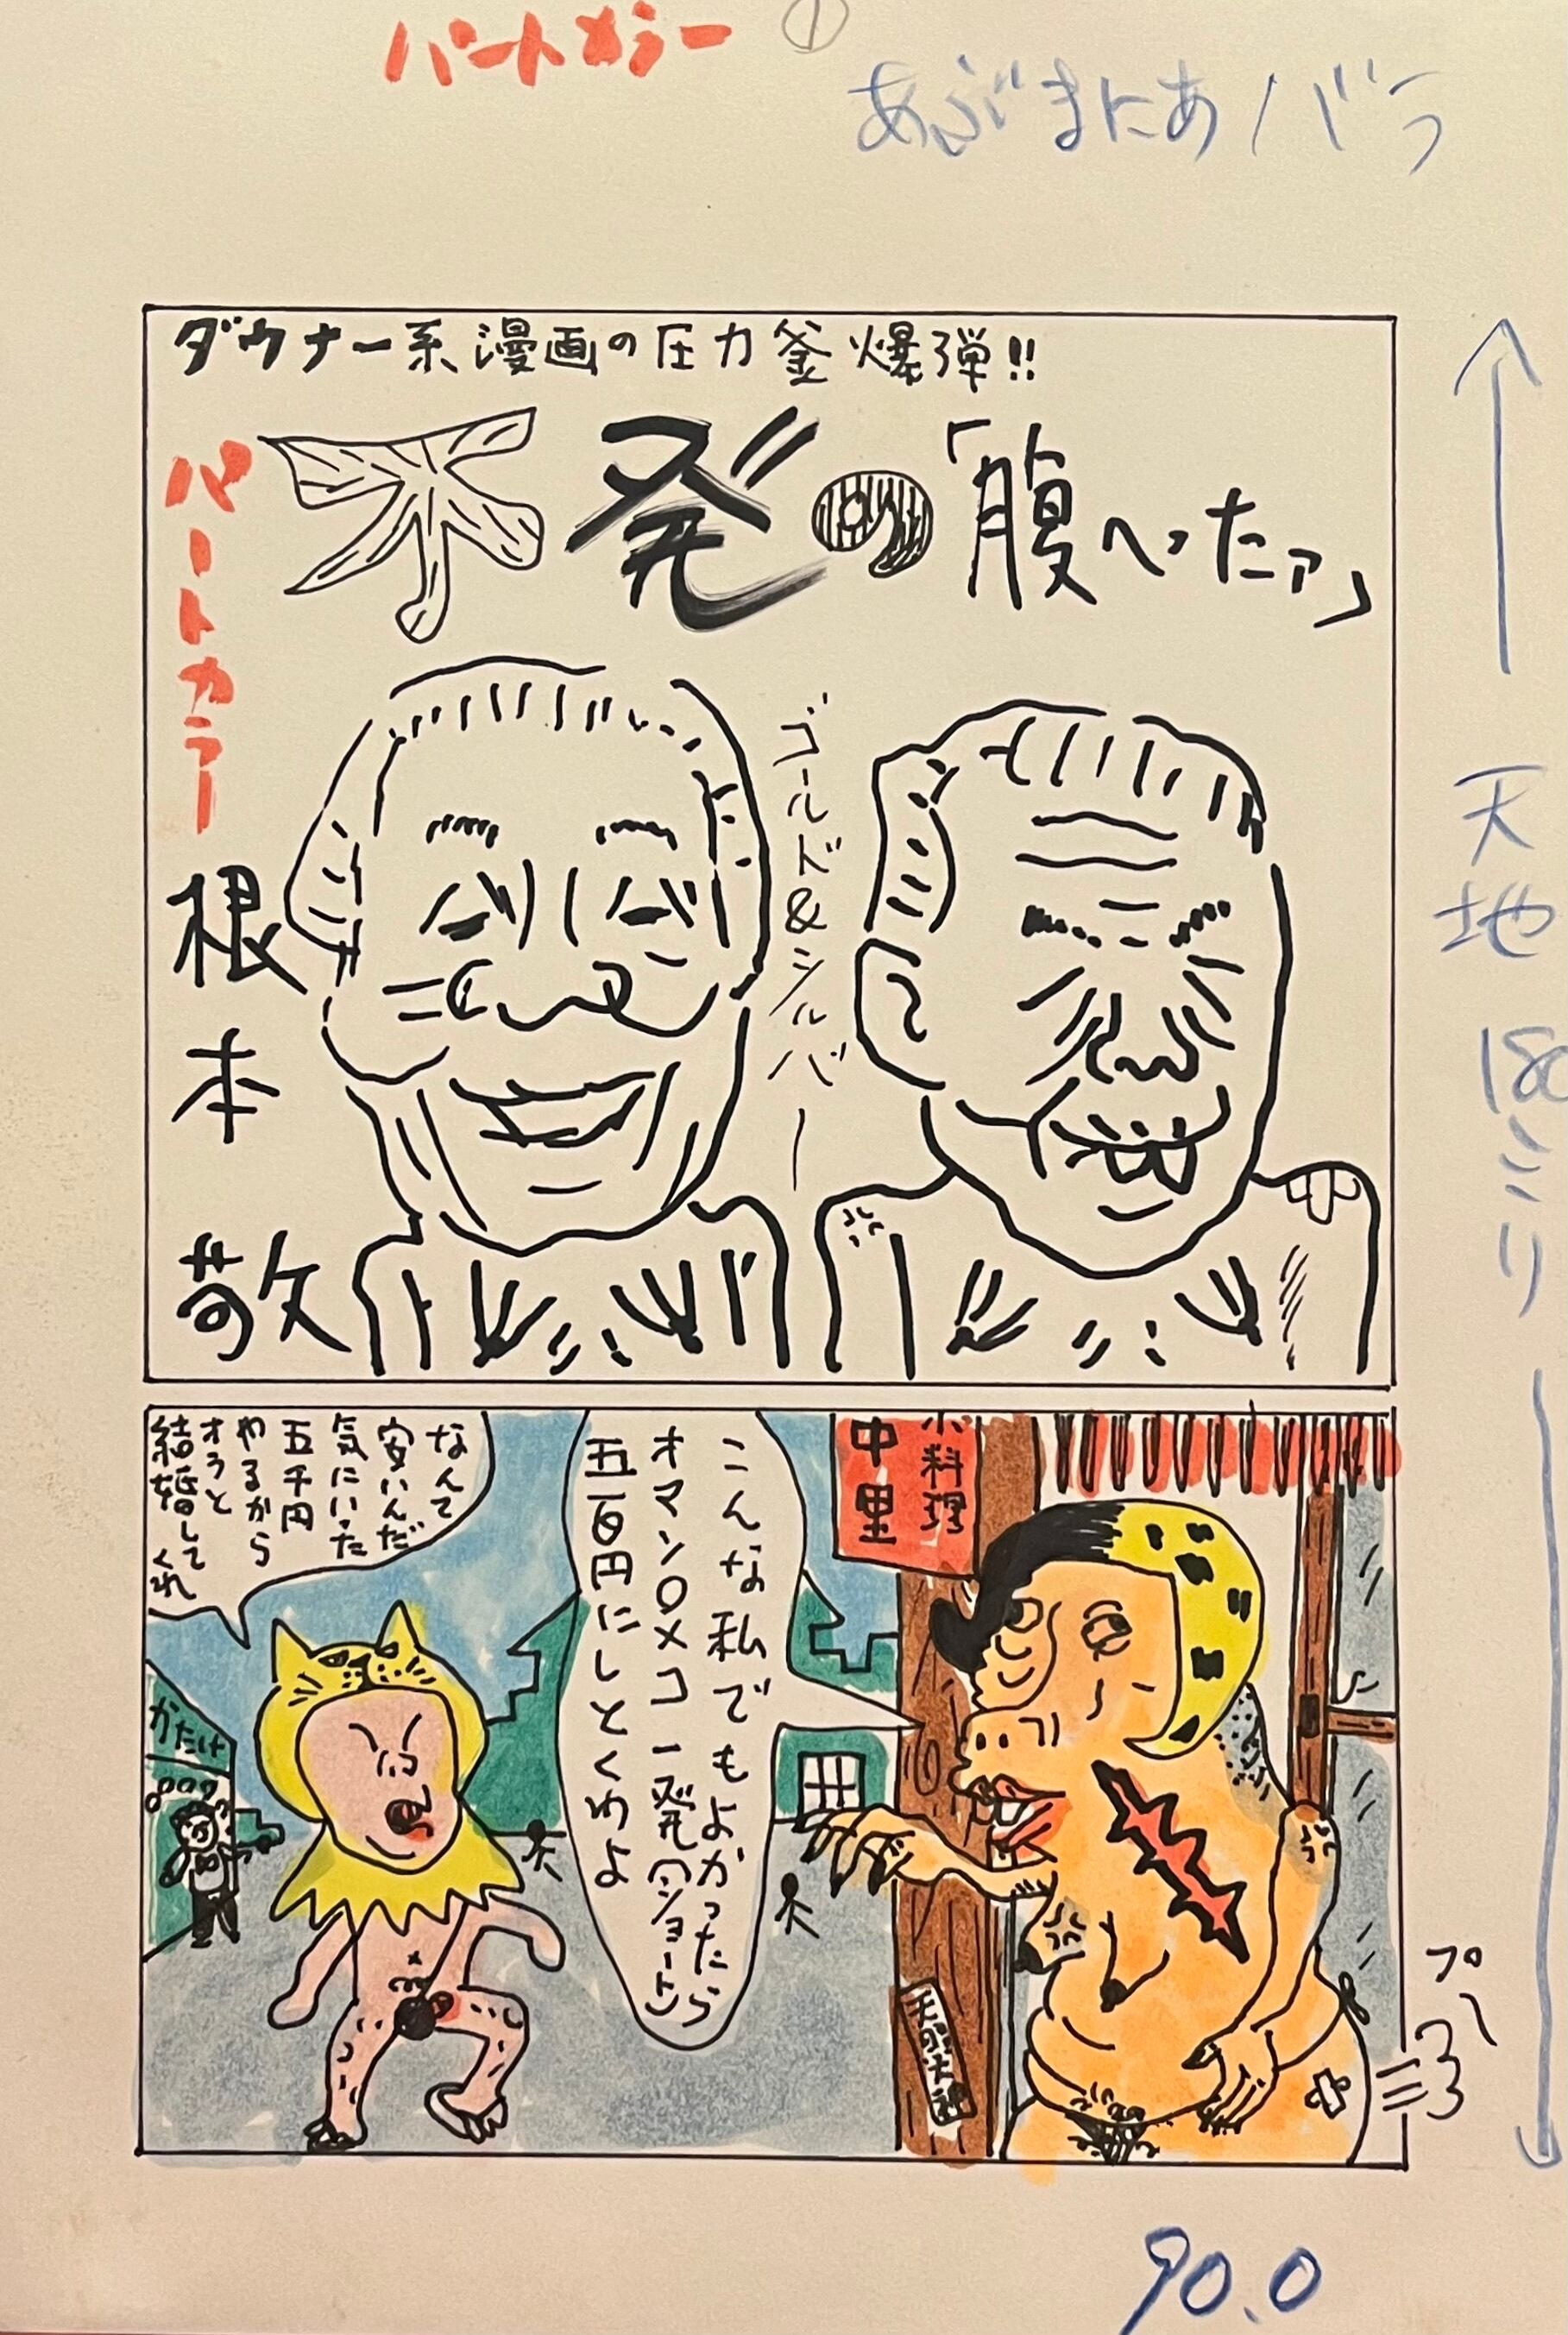 パートカラー
①
あぶまにあ/バラ
ダウナー系漫画の圧力釜爆弾!!
不発の「腹へったァ」
パートカラー
ゴールド&シルバー
根本敬
天地180ミリ
小料理
中里
こんな私でもよかったら
オマン〇メコ一発(ショート)
五百円にしとくわよ
なんて
安いんだ
気にいった
五千円
やるから
オラと
結婚して
くれ
かたけ
プ〜
90.0